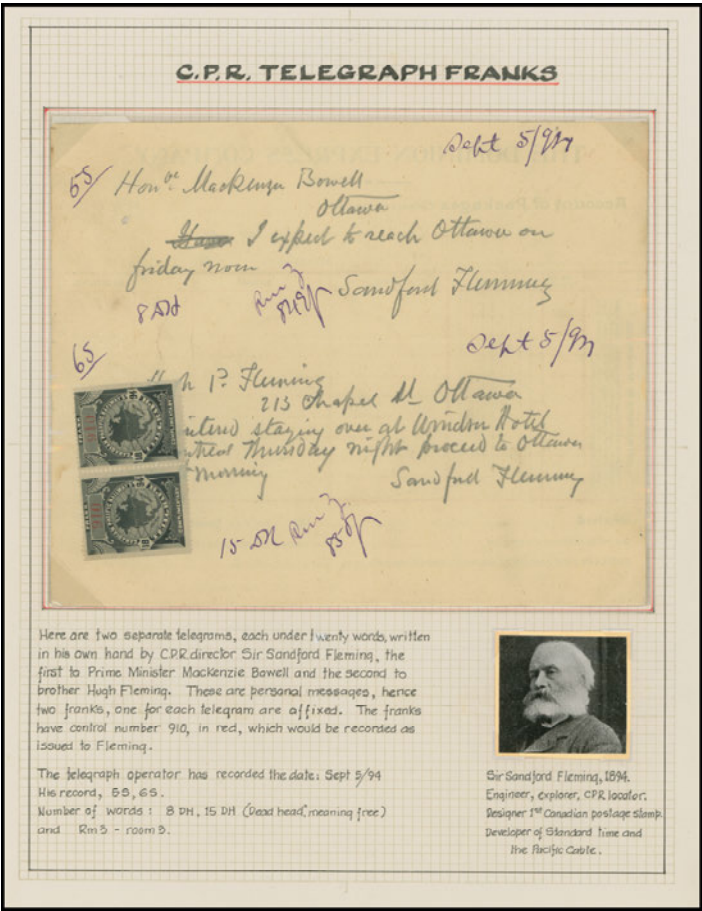 C.P.R. TELEGRAPH FRANKS
Sept 5/94
55/ Honble Mackenzie Bowell
Ottawa
I expect to reach Ottawa on
friday noon
Sandford Fleming
8 DH
Rm 3
65
Sept 5/94
Hugh Fleming
213 Chapel St Ottawa
staying over at Windsor Hotel
Thursday night proceed to Ottawa
morning
Sandford Fleming
15 DH Rm 3
910
910
Here are two separate telegrams, each under twenty words, written
in his own hand by C.P.R. director Sir Sandford Fleming, the
first to Prime Minister MacKenzie Bowell and the second to
brother Hugh Fleming. These are personal messages, hence
two franks, one for each telegram are affixed. The franks
have control number 910, in red, which would be recorded as
issued to Fleming.
The telegraph operator has recorded the date: Sept 5/94
His record, 55, 65.
Number of words: 8 DH, 15 DH (Dead head, meaning free)
and Rm3 - room 3.
Sir Sandford Fleming, 1894.
Engineer, explorer, CPR locator.
Designer 1st Canadian postage stamp.
Developer of Standard time and
the Pacific Cable.